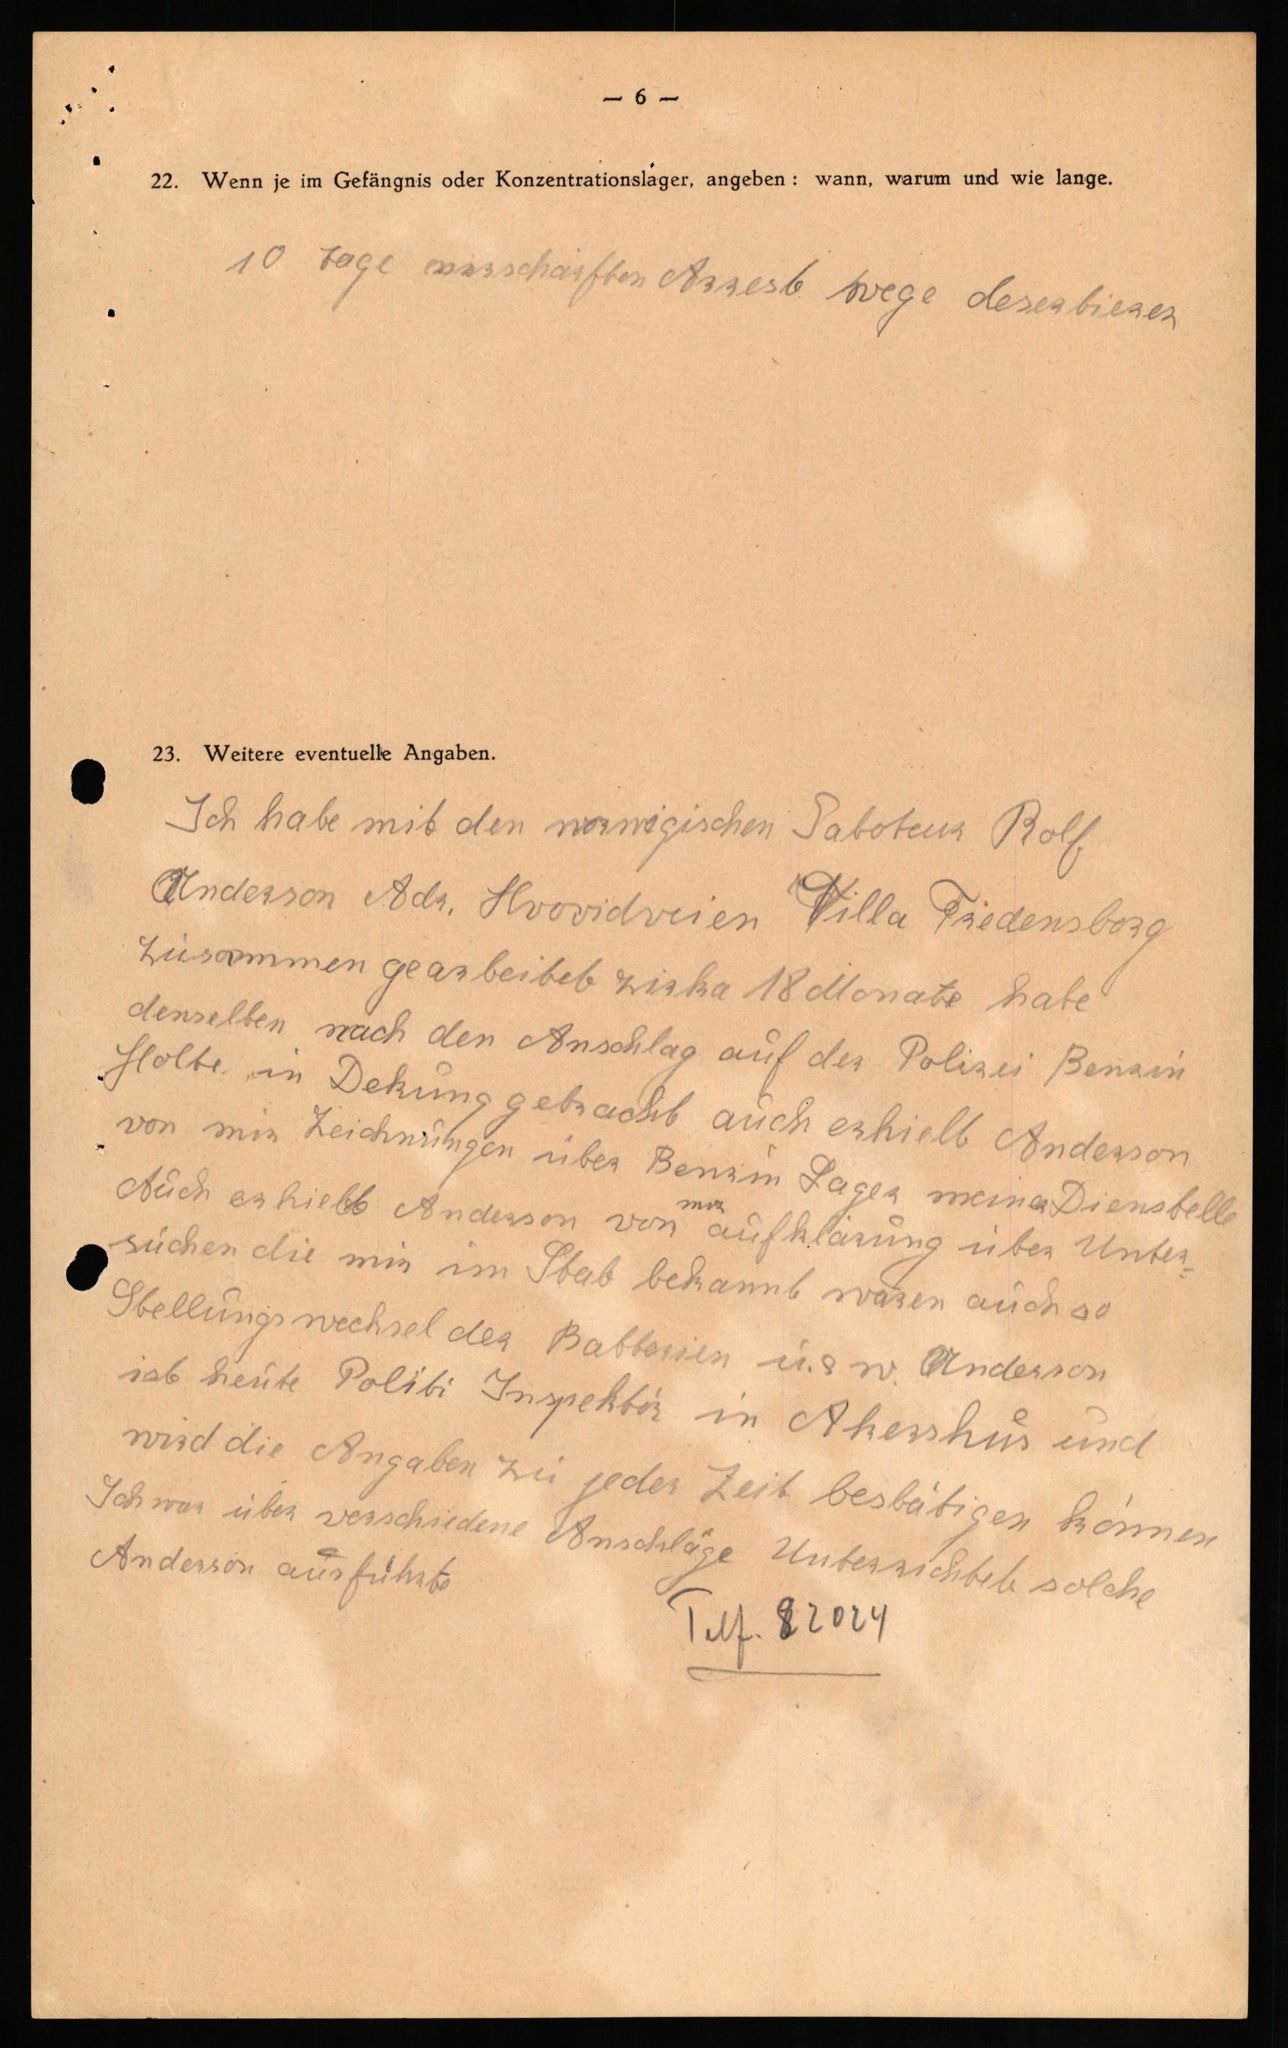 — 6 —
22. Wenn je im Gefängnis oder Konzentrationslager, angeben: wann, warum und wie lange.
10 tage verschärften Arrest wege deserbierer
23. Weitere eventuelle Angaben.
Ich habe mit den norwigischen Saboteur Rolf
Anderson Adr. Hvovidveien Villa Friedensborg
zusammen gearbeitet zirka 18 Monate habe
denselben nach den Anschlag auf der Polizei Benzin
Holte in Dekung gebracht auch erhielt Anderson
von mir Zeichnungen über Benzin Lager meiner Diensbelle
Auch erhielt Anderson von mir aufklärung über Unter-
suchen die mir im Stab bekannt waren auch so
Stellungswechsel der Batterien u.s w. Anderson
ist heute Politi Inspektör in Akershus und
wird die Angaben zu jeder Zeit bestätigen können
Ich war über verschiedene Anschläge Unterrichtet solche
Anderson ausführte
Telf. 82024